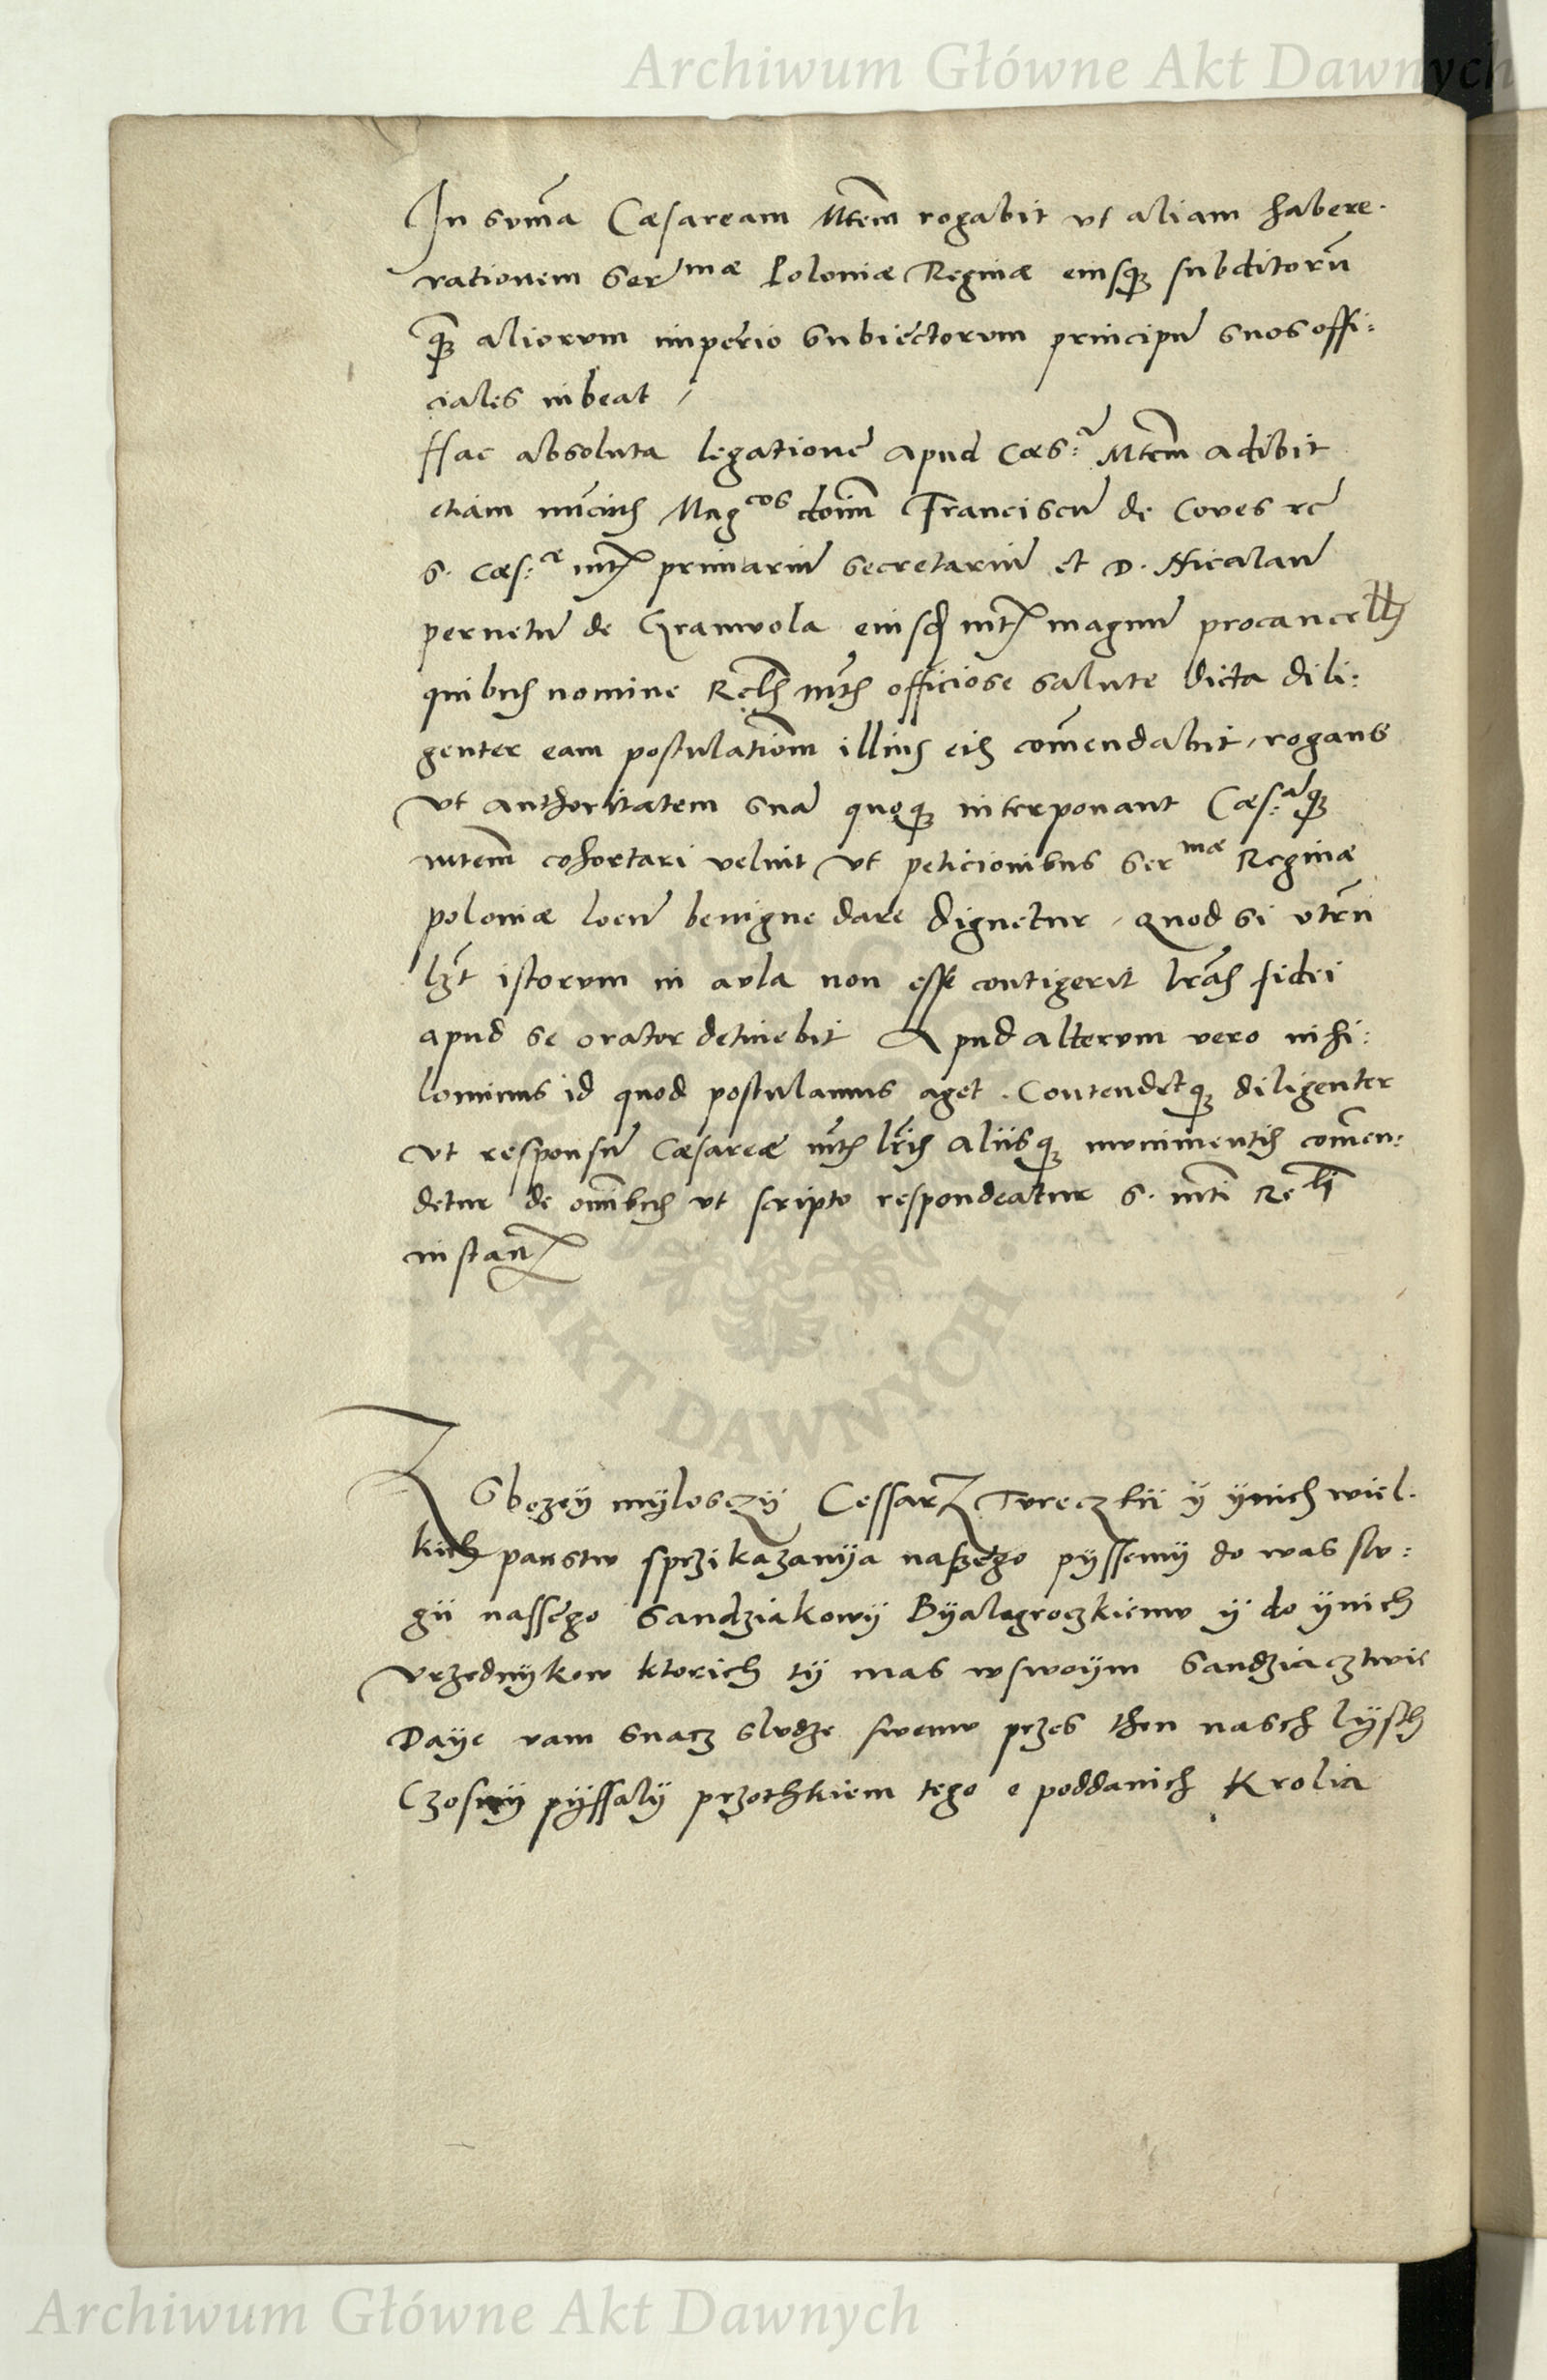 Archiwum Główne Akt Dawnych
In sum̃a Cæsaream Mtem̃ rogabit ut aliam habere
rationem Serᵐᵃᵉ Poloniæ Reginæ eiusq; subditorũ
q̃; aliorum imperio subiectorum principũ suos offi:
ciales iubeat /
Hac absoluta legatione apud Cæs:ᵃ Mtem̃ adibit
etiam nũcius Magᶜᵒˢ doim̃ Franciscũ de Coves rc
S. Cæs:ᵉ mtꝭ primariũ secretariũ et D. Nicalaũ
pernetũ de Granvola eiusd mtꝭ magnũ procancellꝭ
quibus nomine Rełis mt̃s officiose salute dicta dili:
genter eam postulatiom̃ illius eis com̃endabit, rogans
ut authoritatem suã quoq; interponant Cæs:ᵃq;
mtem̃ cohortari velint ut peticionibus Serᵐᵃᵉ Reginæ
poloniæ locũ benigne dare dignetur, Quod si utrũ
lꝫt istorum in aula non esse contigerit lrãs fidei
apud se orator detinebit Apud alterum vero nihi:
lominus id quod postulamus aget. Contendetq; diligenter
ut responsũ Cæsareæ mt̃s lr̃is aliisq; munimentis com̃en:
detur de om̃ibus ut scripto respondeatur S. mti Rełi
instanꝭ
Z Sbozey mylosczy Cessarz Tureczkii y ynich wiel.
kich panstw sprzikazanya naszego pyssemy do was slu:
gii nassego Sandziakowy Byalagroczkiemu y do ynich
urzednykow ktorich ty mas wswoym Sandziacztwie
Daye vam Snacz sludze swemu przes then nasch lysth
Czosmy pyssaly przothkiem tego o poddanich Krolia
AKT DAWNYCH
Archiwum Główne Akt Dawnych